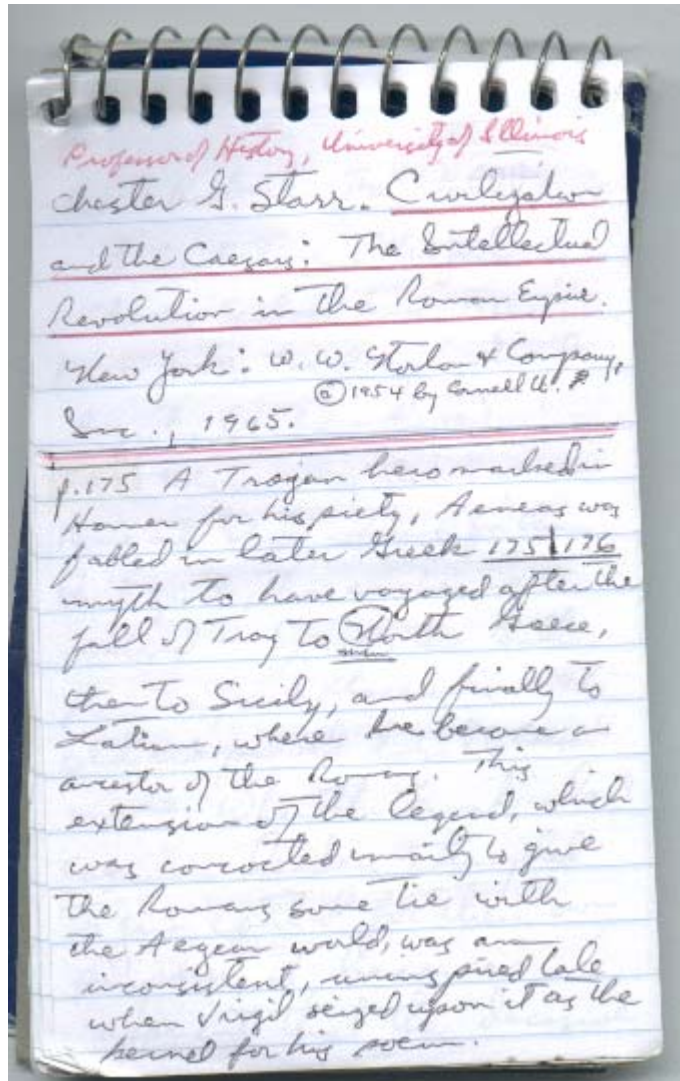 Professor of History, University of Illinois
Chester G. Starr. Civilization
and the Caesars: The Intellectual
Revolution in the Roman Empire.
New York: W. W. Norton & Company,
© 1954 by Cornell U. P.
Inc., 1965.
p.175 A Trojan hero marked in
Homer for his piety, Aeneas was
fabled in later Greek 175|176
myth to have voyaged after the
fall of Troy to North Greece,
then to Sicily, and finally to
Latium, where he became an
ancestor of the Romans. This
extension of the legend, which
was concocted mainly to give
the Romans some tie with
the Aegean world, was an
inconsistent, uninspired tale
when Virgil seized upon it as the
kernel for his poem.